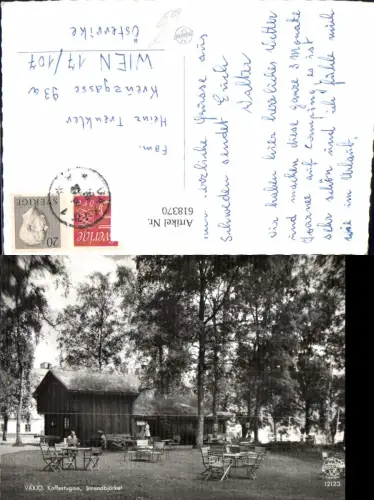 Wir haben hier herrliches Wetter
und machen diese ganze 3 Monate
Tournee auf Camping, es ist
sehr schön und ich fühle mich
wie im Urlaub.
herzliche Grüsse aus
Schweden sendet Euch
Walter
Fam.
Heinz Treukler
Kreuzgasse 93a
WIEN 17/107
Österrike
Artikel Nr.
618370
20
SVERIGE
sverige
VÄXJÖ. Kaffestugan, Strandbjörket
12123